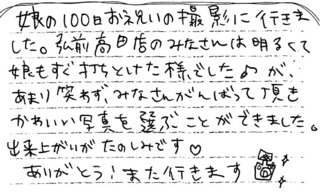 娘の100日お祝いの撮影に行きま
した。弘前高田店のみなさんは明るくて
娘もすぐ打ちとけた様でした♪が、
あまり笑わず、みなさんがんばって頂き
かわいい写真を選ぶことができました。
出来上がりがたのしみです♡
ありがとう!また行きます